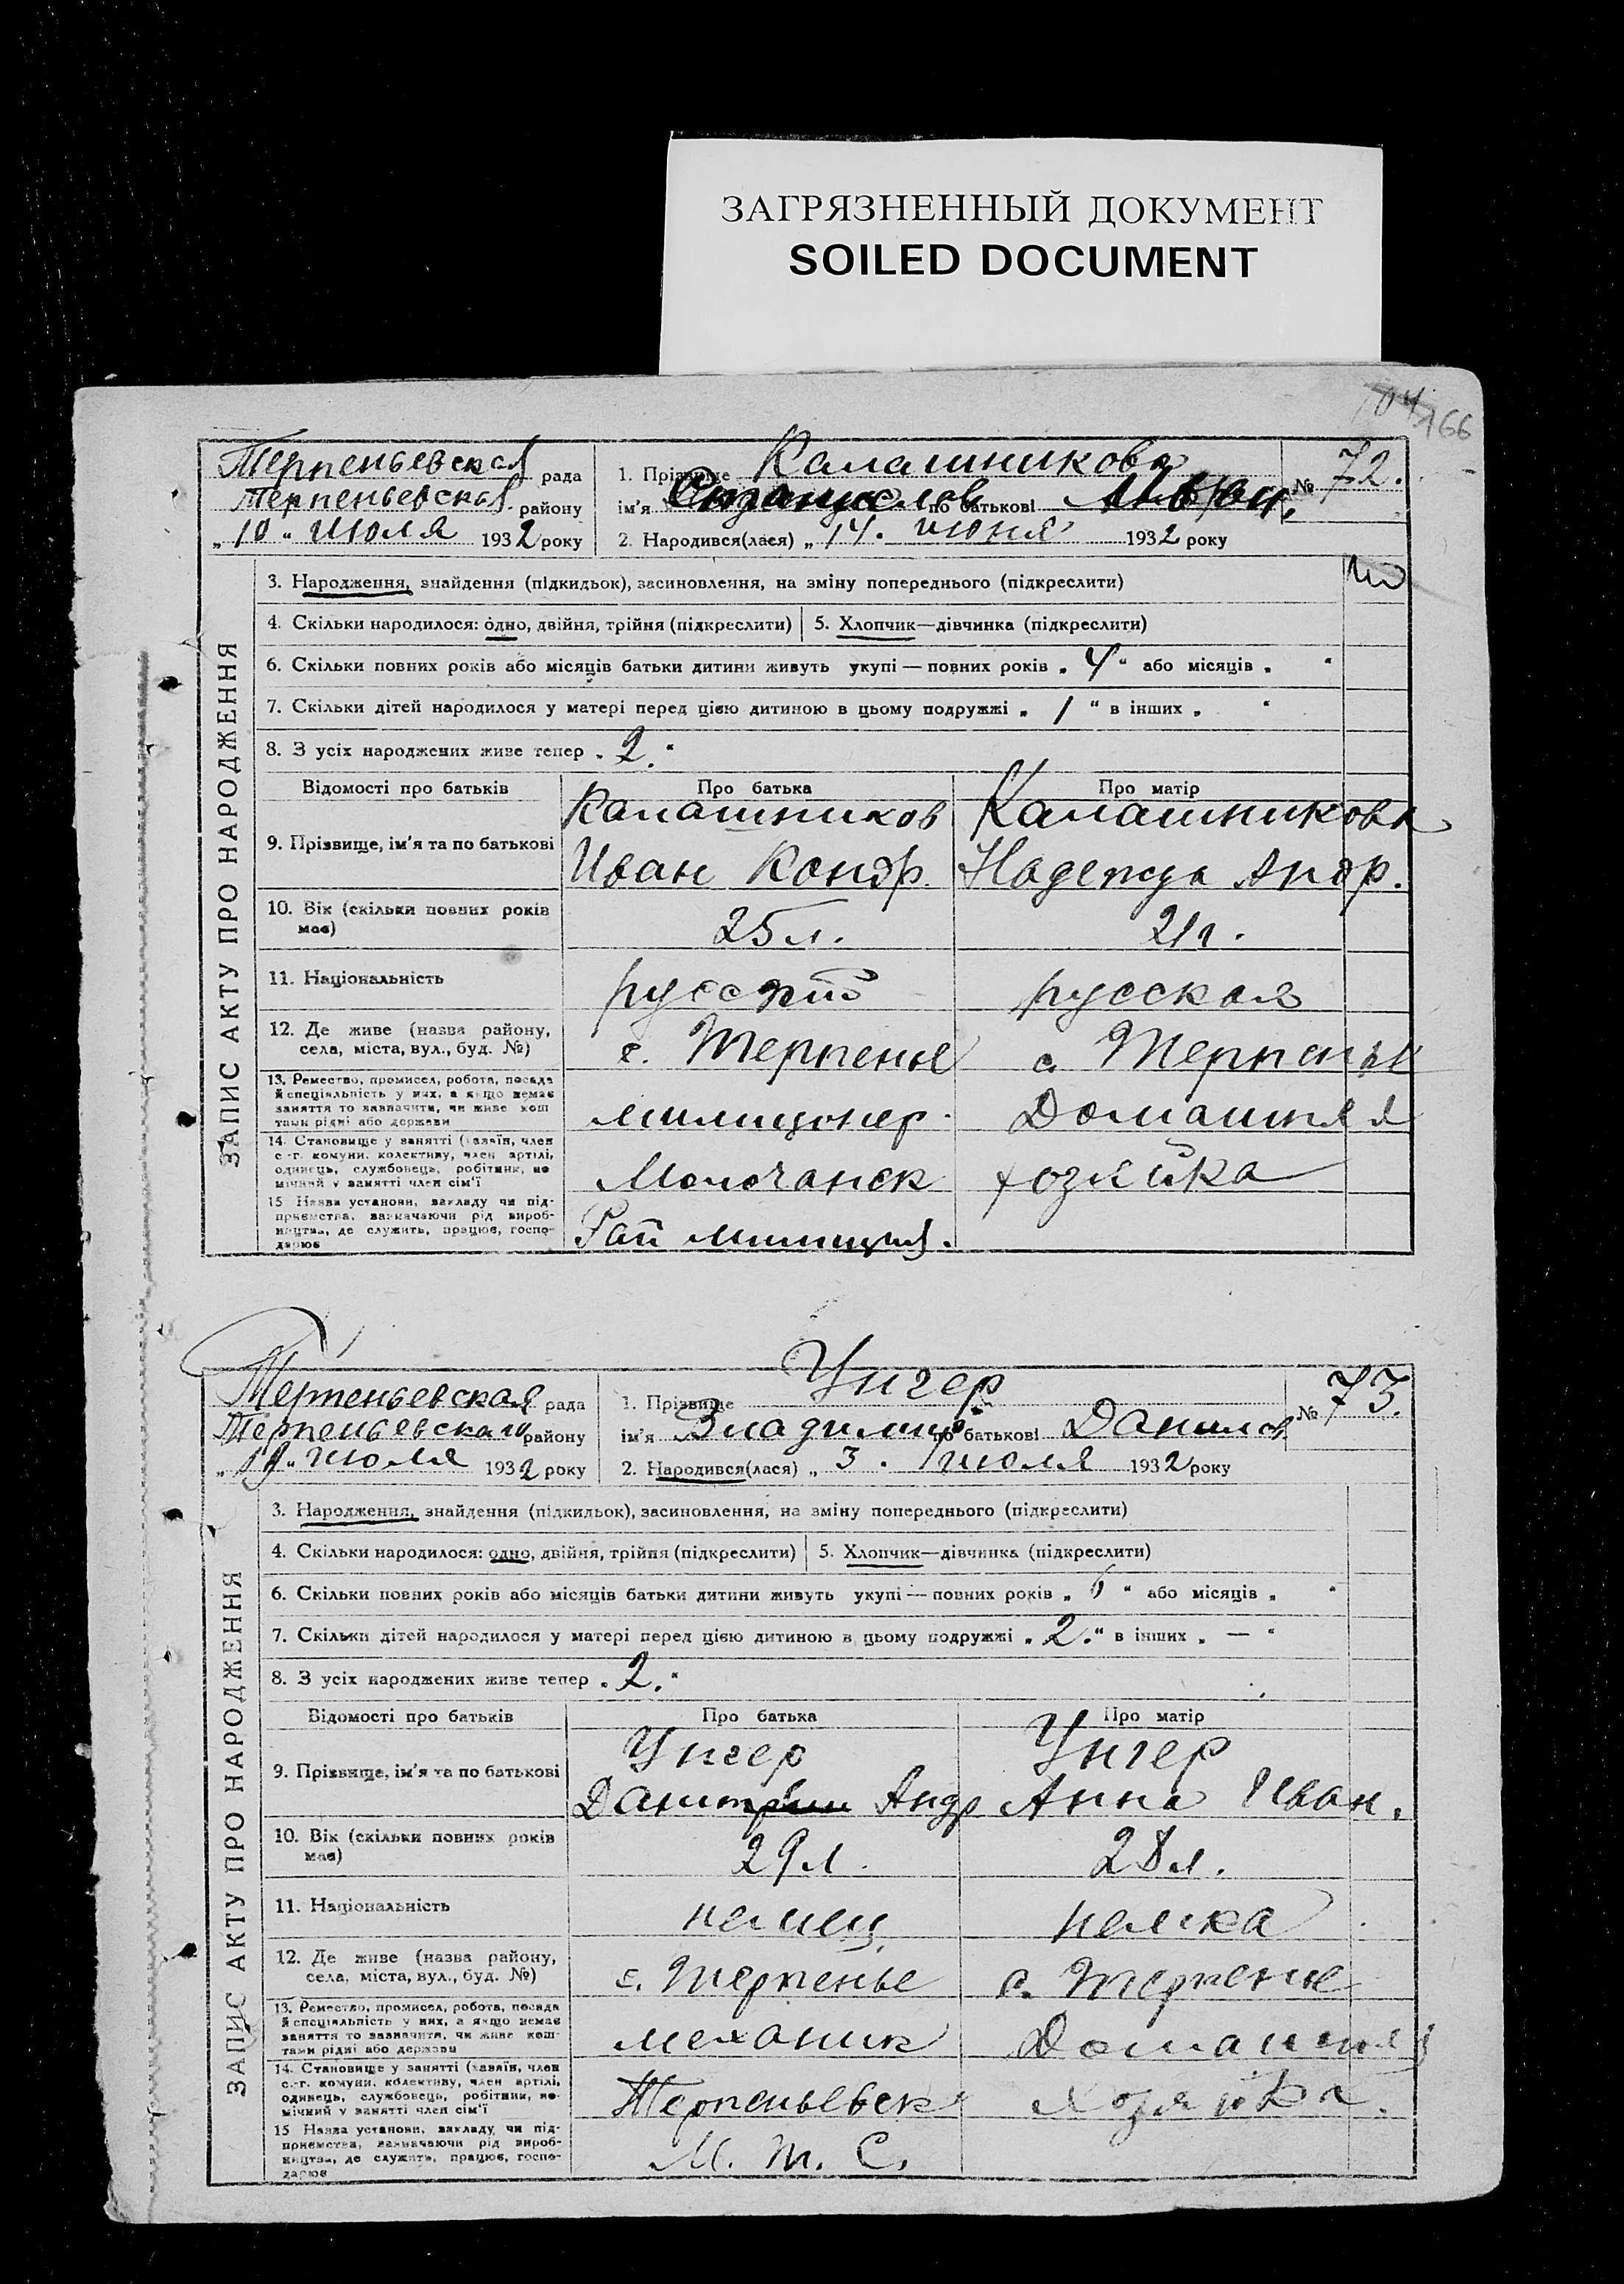 ЗАГРЯЗНЕННЫЙ ДОКУМЕНТ
SOILED DOCUMENT
166
Терпеньевская рада
Терпеньевская району
„10" июля 1932 року
1. Прізвище Калашникова
ім'я по батькові
№ 72.
2. Народився(лася) „14. июня 1932 року
ЗАПИС АКТУ ПРО НАРОДЖЕННЯ
3. Народження, знайдення (підкидьок), засиновлення, на зміну попереднього (підкреслити)
4. Скільки народилося: одно, двійня, трійня (підкреслити) 5. Хлопчик—дівчинка (підкреслити)
6. Скільки повних років або місяців батьки дитини живуть укупі — повних років „ 4 " або місяців „ "
7. Скільки дітей народилося у матері перед цією дитиною в цьому подружжі „ 1 " в інших „ "
8. З усіх народжених живе тепер „ 2. "
Відомості про батьків Про батька Про матір
9. Прізвище, ім'я та по батькові
Калашников Калашникова
Иван Кондр. Надежда Андр.
10. Вік (скільки повних років має) 25 л. 21 г.
11. Національність русский русская
12. Де живе (назва району, села, міста, вул., буд. №) с. Терпенье с. Терпенье
13. Ремество, промисел, робота, посада й спеціяльність у них, а якщо немає заняття то зазначити, чи живе коштами рідні або держави
милиционер. Домашняя
14. Становище у занятті (хазяїн, член с.-г. комуни, колективу, член артілі, одинець, службовець, робітник, помічний у занятті член сім'ї
Молочанск хозяйка
15 Назва установи, закладу чи підприємства, зазначаючи рід виробництва, де служить, працює, господарює
Рай милиция.
Терпеньевская рада
Терпеньевская району
июля 1932 року
1. Прізвище Унгер
ім'я Владимир по батькові Данилов
№ 73.
2. Народився(лася) „ 3. июля 1932 року
ЗАПИС АКТУ ПРО НАРОДЖЕННЯ
3. Народження, знайдення (підкидьок), засиновлення, на зміну попереднього (підкреслити)
4. Скільки народилося: одно, двійня, трійня (підкреслити) 5. Хлопчик—дівчинка (підкреслити)
6. Скільки повних років або місяців батьки дитини живуть укупі — повних років „ 6 " або місяців „ "
7. Скільки дітей народилося у матері перед цією дитиною в цьому подружжі „ 2. " в інших „ — "
8. З усіх народжених живе тепер „ 2. "
Відомості про батьків Про батька Про матір
9. Прізвище, ім'я та по батькові
Унгер Унгер
Андр Анна Иван.
10. Вік (скільки повних років має) 29 л. 28 л.
11. Національність немец немка
12. Де живе (назва району, села, міста, вул., буд. №) с. Терпенье с. Терпенье
13. Ремество, промисел, робота, посада й спеціяльність у них, а якщо немає заняття то зазначити, чи живе коштами рідні або держави
механик Домашняя
14. Становище у занятті (хазяїн, член с.-г. комуни, колективу, член артілі, одинець, службовець, робітник, помічний у занятті член сім'ї
Терпеньевск хозяйка.
15 Назва установи, закладу чи підприємства, зазначаючи рід виробництва, де служить, працює, господарює
М. Т. С.